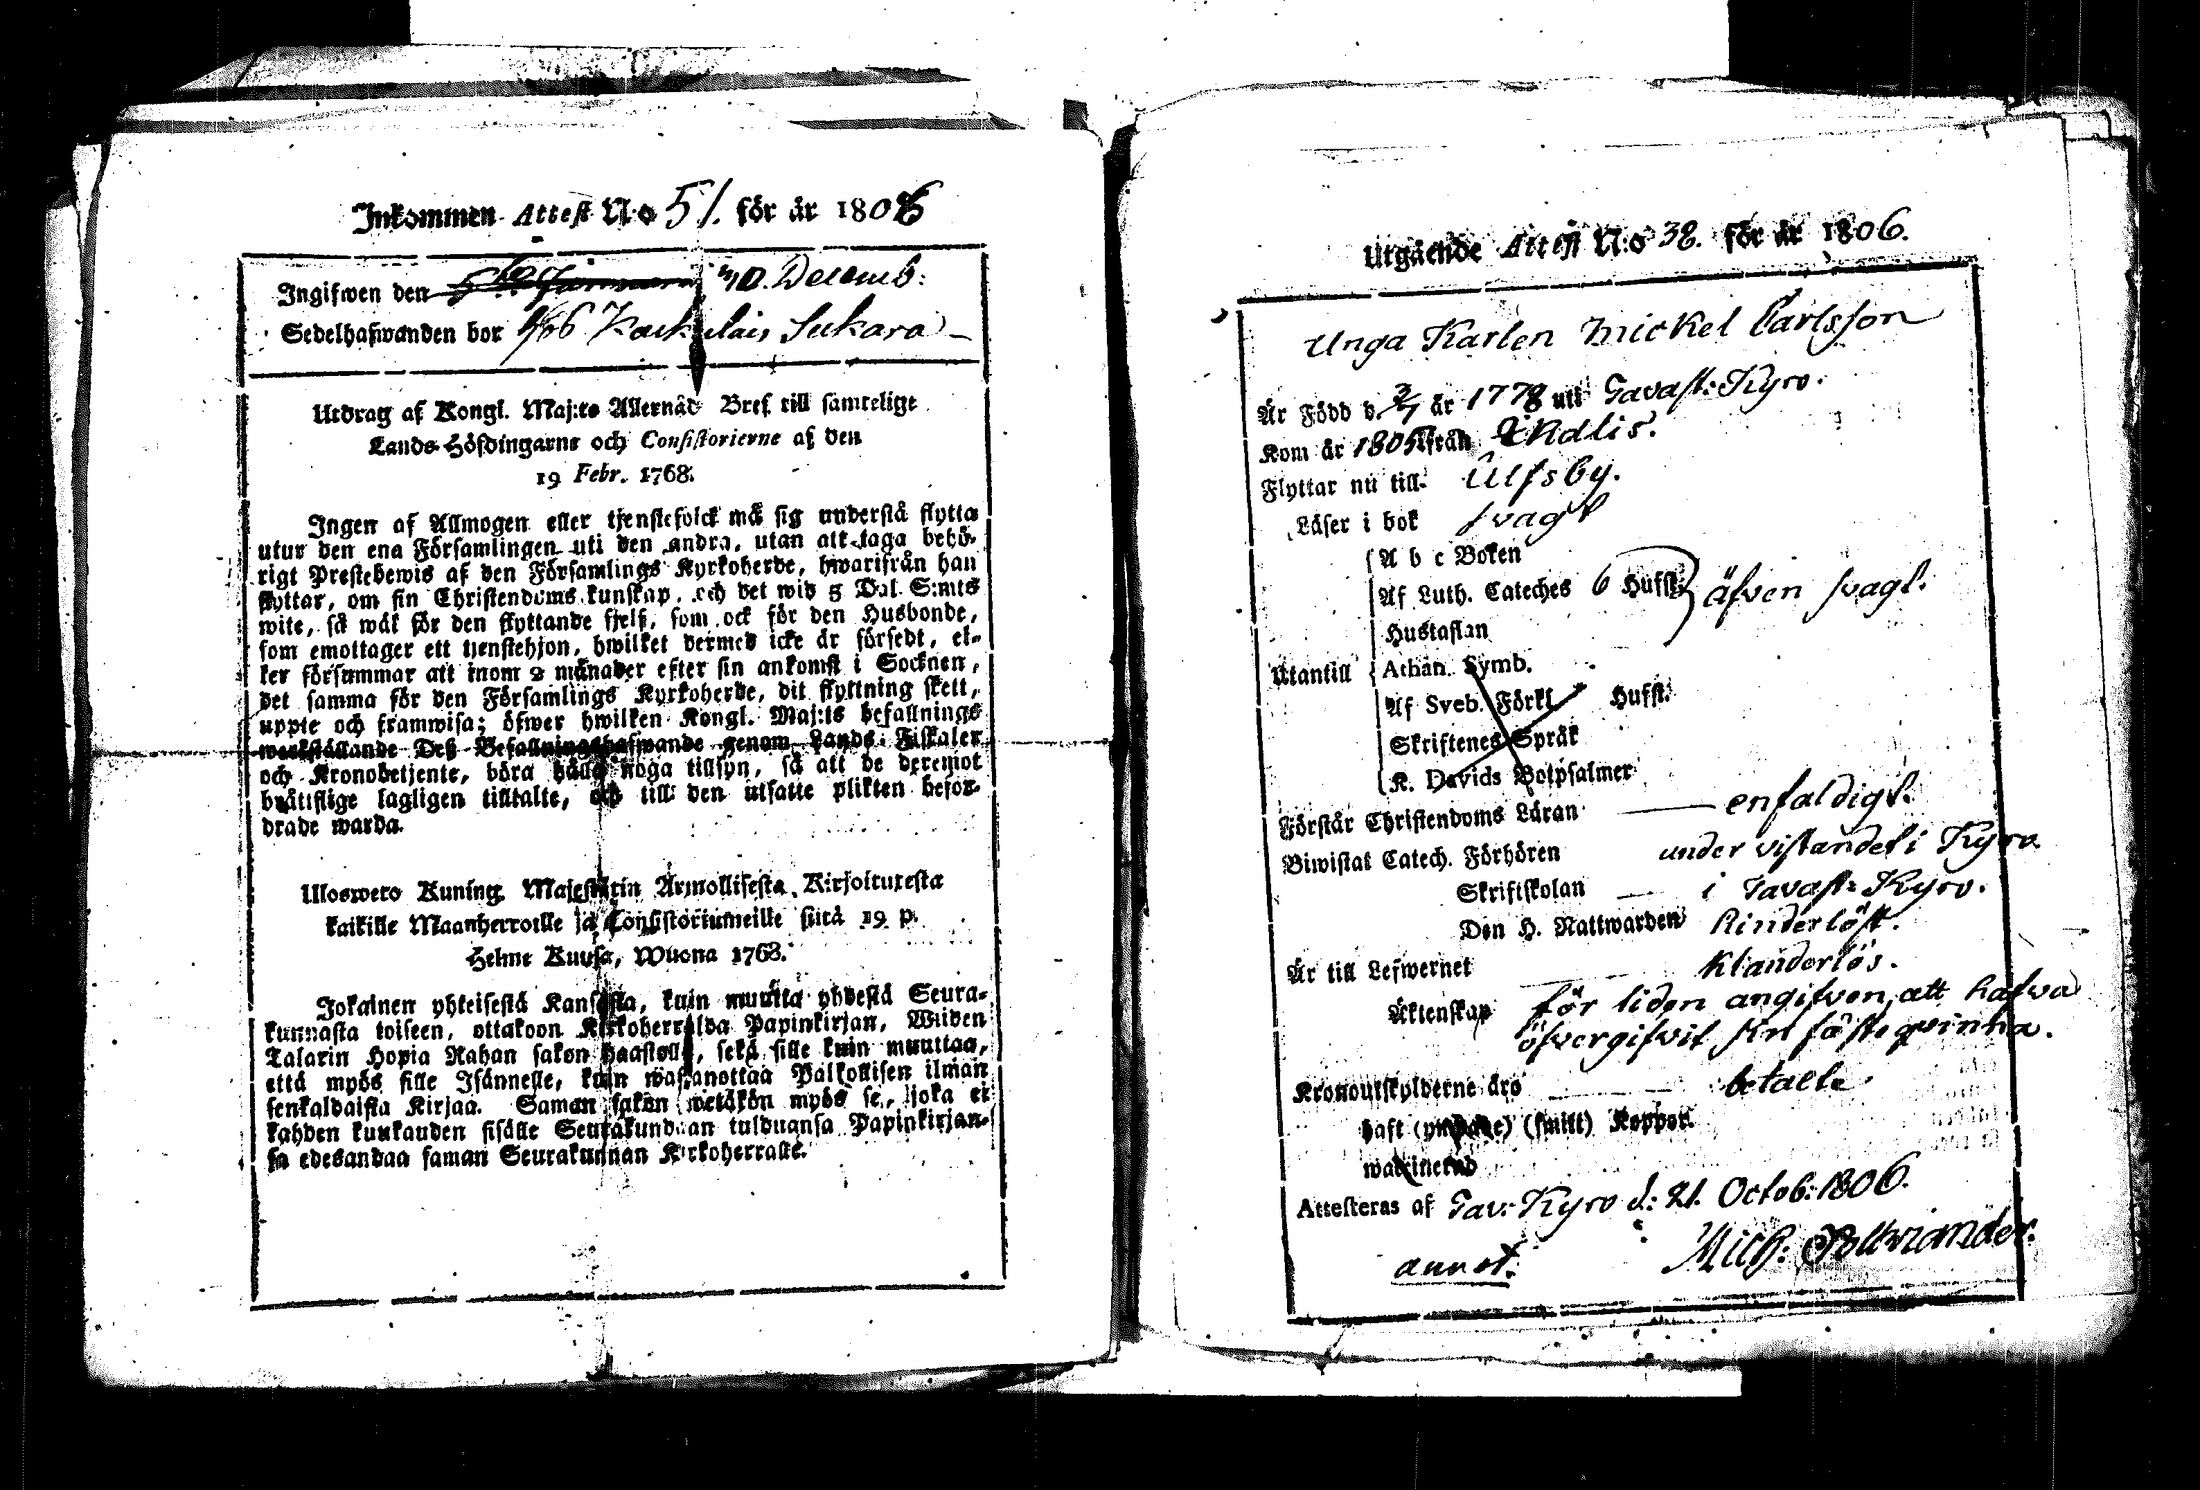 Inkommen Attest N:o 51. för år 1806
Ingifwen den 30. Decemb:
Sedelhafwanden bor Sukara
Utdrag af Kongl. Maj:ts Allernåd Bref till samtelige
Lands-Höfdingarne och Consistorierne af den
19 Febr. 1768.
Ingen af Allmogen eller tjenstefolck må sig understå flytta
utur den ena Församlingen uti den andra, utan att taga behö-
rigt Prestebewis af den Församlings Kyrkoherde, hwarifrån han
flyttar, om sin Christendoms kunskap, och det wid 5 Dal. S:mts
wite, så wäl för den flyttande sjelf, som ock för den Husbonde,
som emottager ett tjenstehjon, hwilket dermed icke är försedt, el-
ler försummar att inom 2 månader efter sin ankomst i Socknen,
det samma för den Församlings Kyrkoherde, dit flyttning skett,
uppte och framwisa; öfwer hwilken Kongl. Maj:ts befallnings
werkställande Deß Befallningshafwande genom Lands-Fiskaler
och Kronobetjente, böra hålla noga tillsyn, så att de deremot
bråttslige lagligen tilltalte, och till den utsatte plikten befor-
drade warda.
Uloswero Kuning. Majestätin Armollisesta Kirjoituxesta
kaikille Maanherroille ja Consistoriumeille siitä 19 p.
Helme Kuusa, Wuona 1768.
Jokainen yhteisestä Kansasta, kuin muutta yhdestä Seura-
kunnasta toiseen, ottakoon Kirkoherralda Papinkirjan, Wiiden
Talarin Hopia Rahan sakon haastolla, sekä sille kuin muuttaa,
että myös sille Isännelle, kuin wastanottaa Palkollisen ilman
senkaldaista Kirjaa. Saman sakon wetäkön myös se, joka ei
kahden kuukauden sisälle Seurakundaan tulduansa Papinkirjan-
sa edesandaa saman Seurakunnan Kirkoherralle.
Utgående Attest N:o 38. för år 1806.
Unga Karlen Mickel Carlsson
Är Född d. 2/7 år 1778 uti Tavast: Kyro.
Kom år 1805 från Ikalis.
Flyttar nu till Ulfsby.
Läser i bok svagt
A b c Boken
Af Luth. Cateches 6 Hufst. äfven svagt.
Hustaflan
Utantill Athan. Symb.
Af Sveb. Förkl. Hufst.
Skriftenes Språk
K. Davids Botpsalmer
Förstår Christendoms Läran enfaldigt.
Biwistat Catech. Förhören under vistandet i Kyro
Skriftskolan i Tavast: Kyro.
Den H. Nattwarden hinderlöst.
Är till Lefwernet klanderlös.
Äktenskap för liden angifven, att hafva
öfvergifvit sin fästeqvinna.
Kronoutskylderne äro betalte
haft (ympade) (smitt) Koppor.
waccinerad
Attesteras af Tav: Kyro d: 21. Octob: 1806.
annot. Mich: Polviander.